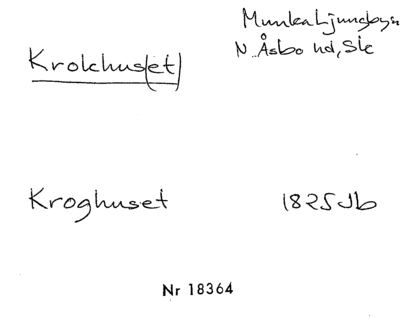 Krokhus(et)
Munka Ljungby sn
N. Åsbo hd, Sk
Kroghuset 1825 Jb
Nr 18364